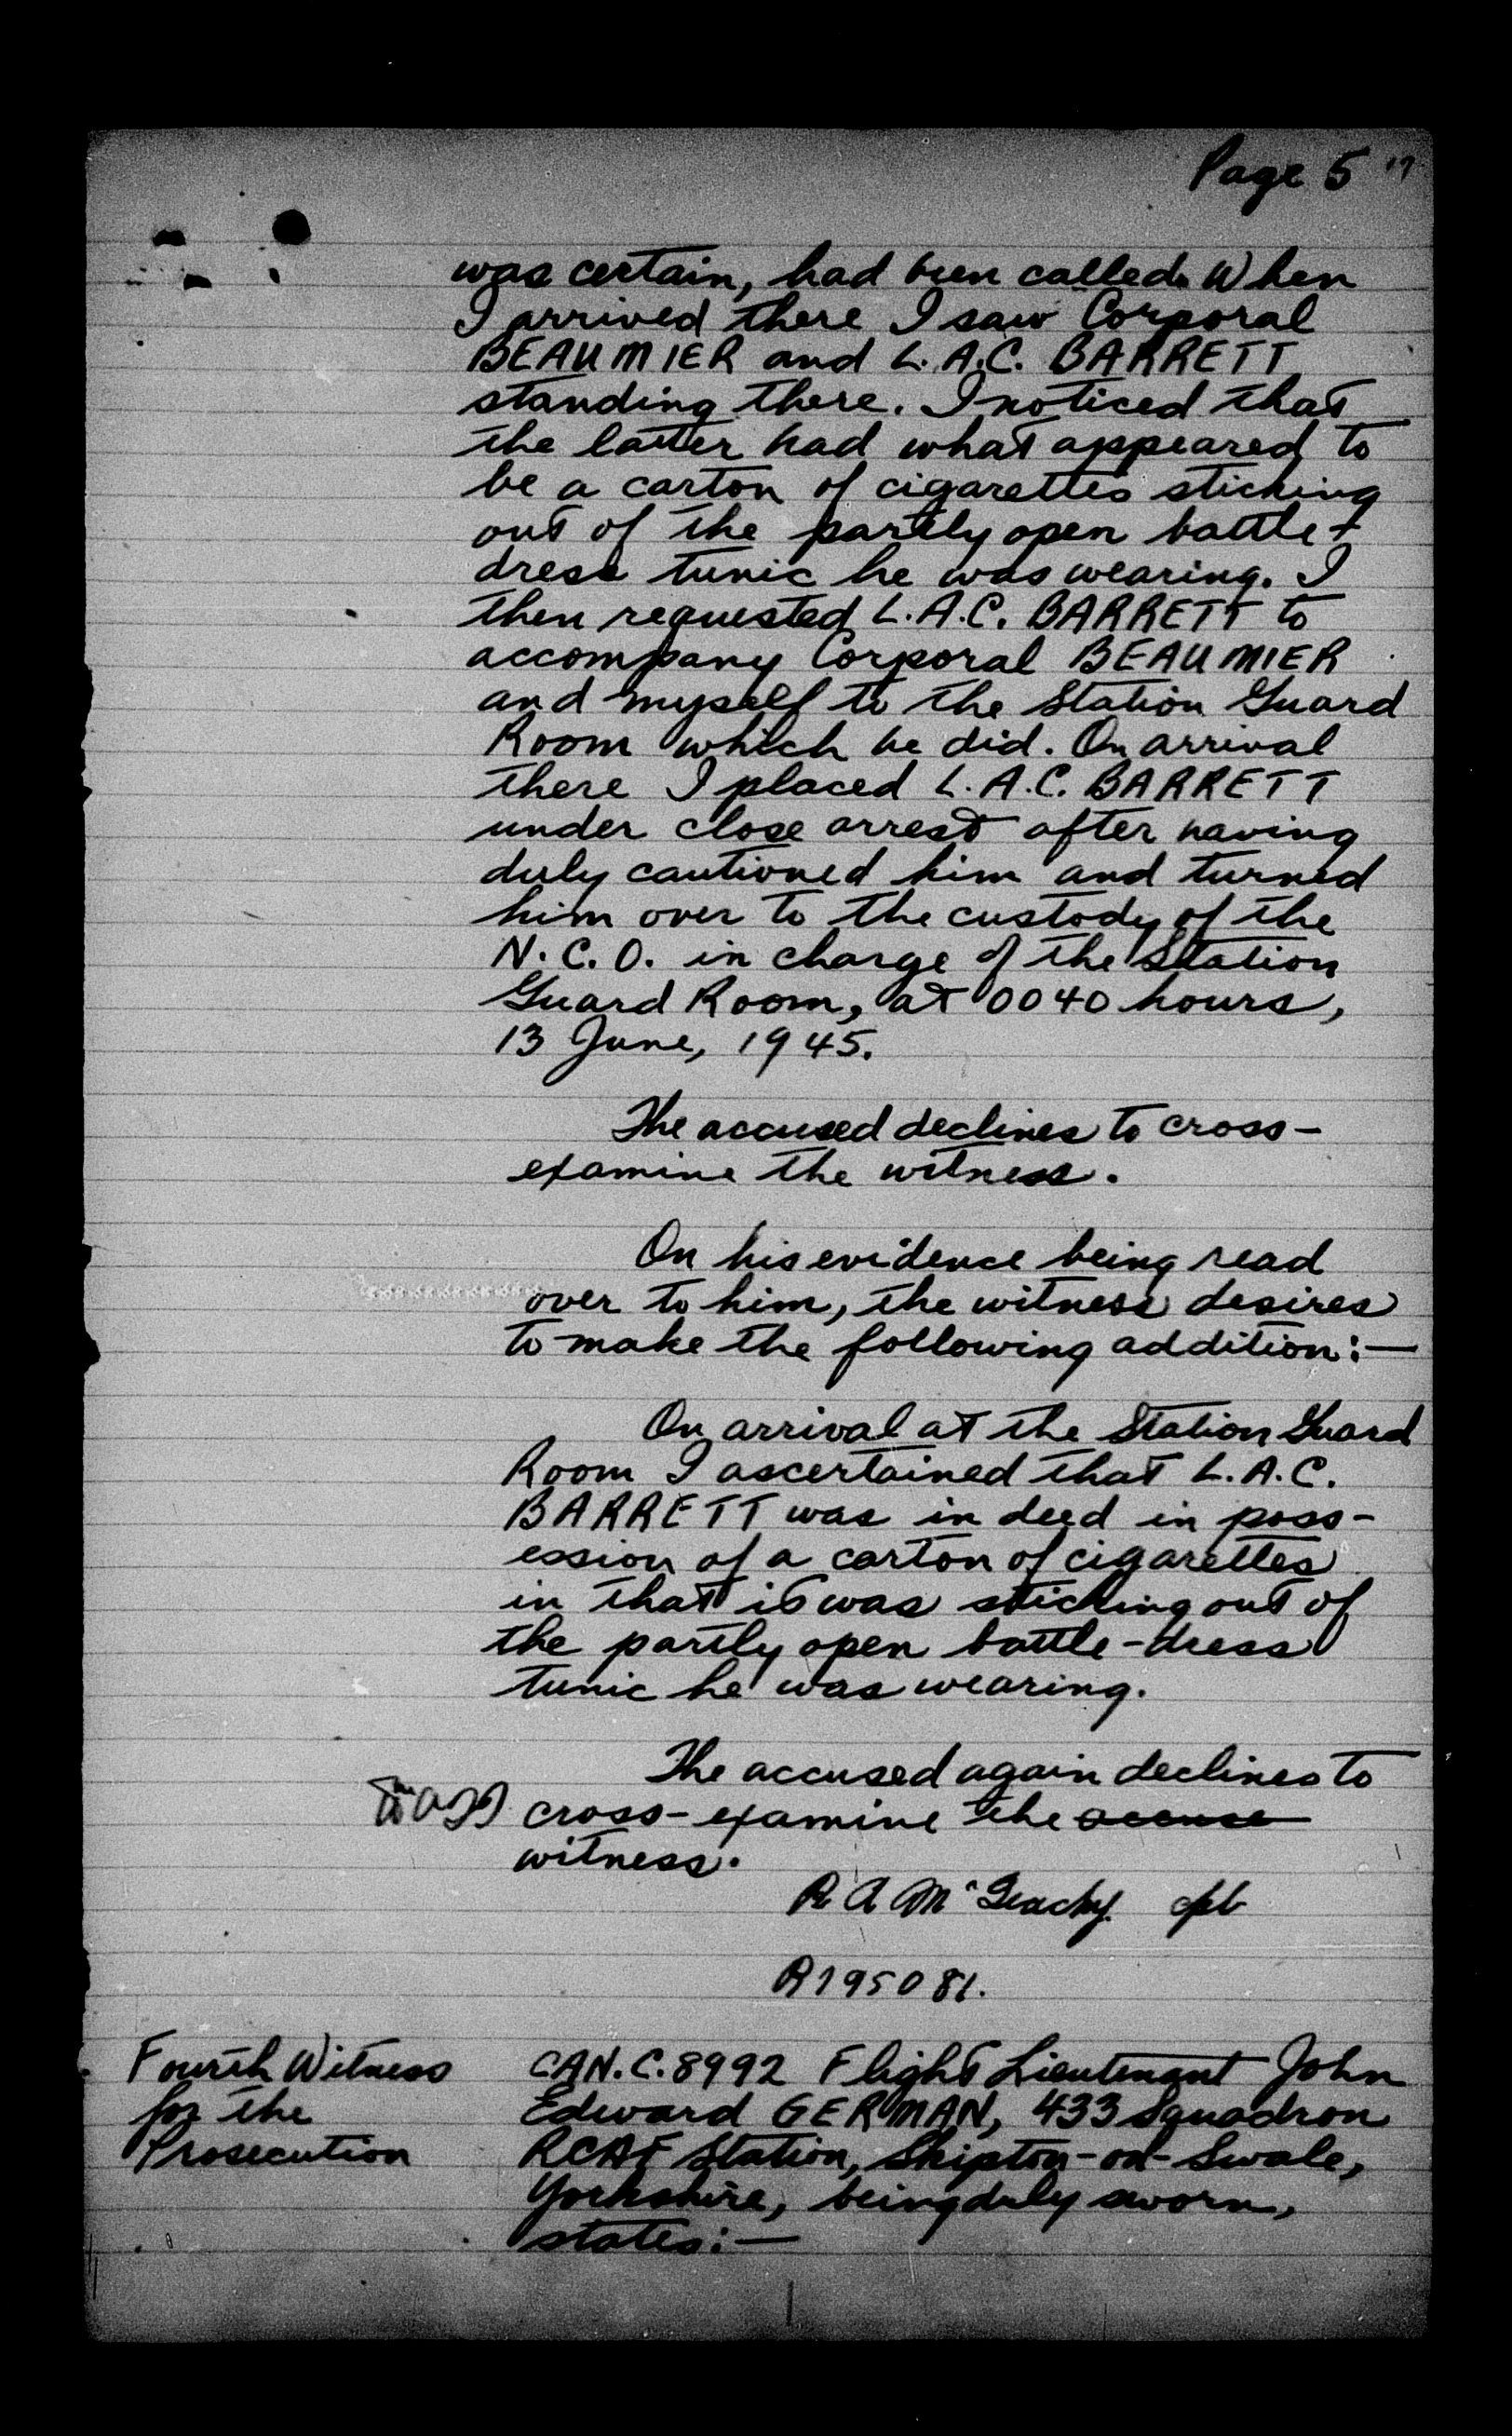 Page 5
was certain, had been called. When
I arrived there I saw Corporal
BEAUMIER and L.A.C. BARRETT
standing there. I noticed that
the latter had what appeared to
be a carton of cigarettes sticking
out of the partly open battle-
dress tunic he was wearing. I
then requested L.A.C. BARRETT to
accompany Corporal BEAUMIER
and myself to the Station Guard
Room which he did. On arrival
there I placed L.A.C. BARRETT
under close arrest after having
duly cautioned him and turned
him over to the custody of the
N.C.O. in charge of the Station
Guard Room, at 0040 hours,
13 June, 1945.
The accused declines to cross-
examine the witness.
On his evidence being read
over to him, the witness desires
to make the following addition:—
On arrival at the Station Guard
Room I ascertained that L.A.C.
BARRETT was indeed in poss-
ession of a carton of cigarettes
in that it was sticking out of
the partly open battle-dress
tunic he was wearing.
The accused again declines to
cross-examine the accuse
witness.
R A McGeachy Cpl
R195081.
Fourth Witness
for the
Prosecution
CAN.C.8992 Flight Lieutenant John
Edward GERMAN, 433 Squadron
RCAF Station, Skipton-on-Swale,
Yorkshire, being duly sworn,
states:—